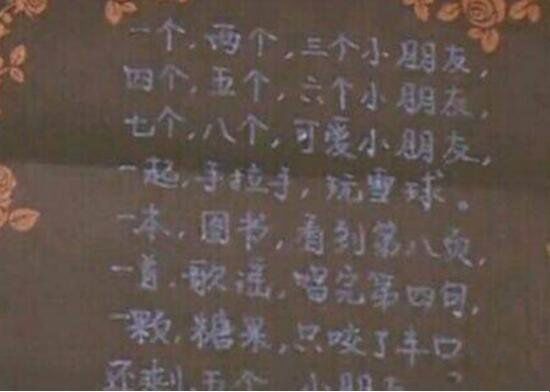 一个,两个,三个小朋友,
四个,五个,六个小朋友,
七个,八个,可爱小朋友,
一起,手拉手,玩雪球。
一本,图书,看到第八页,
一首,歌谣,唱完第四句,
一颗,糖果,只咬了半口
还剩,五个,小朋友